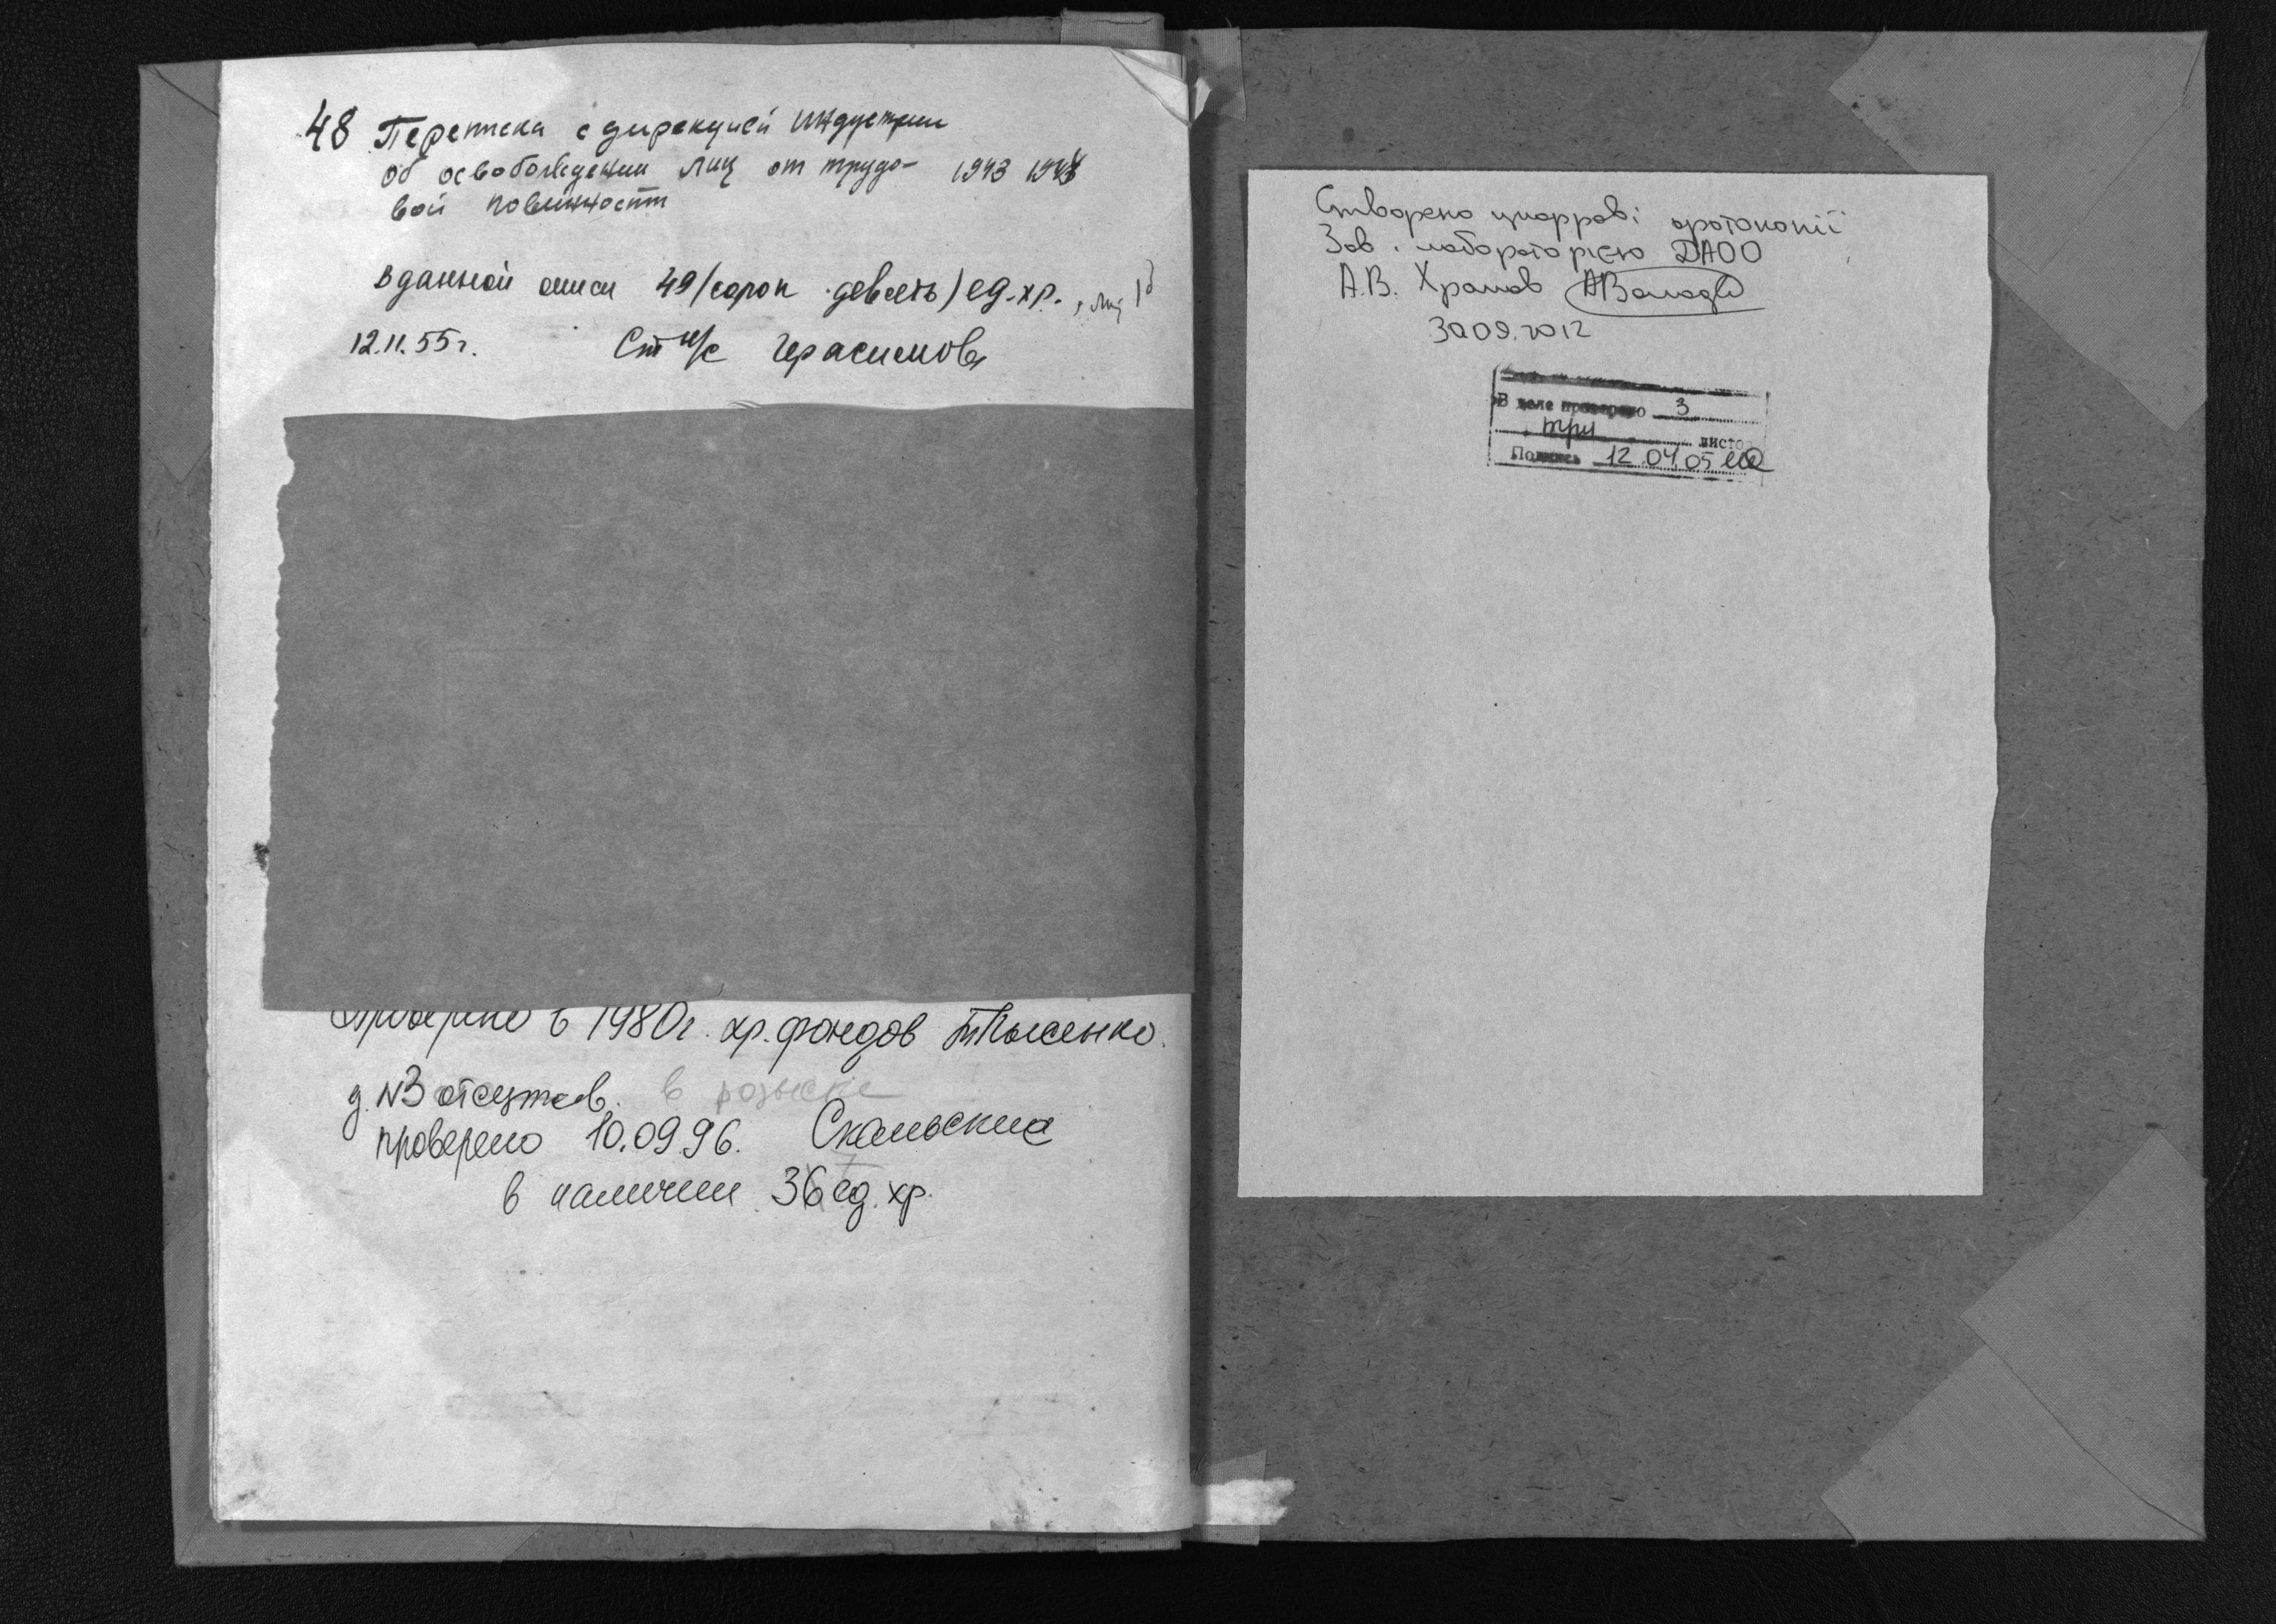 48 Переписка с дирекцией индустрии
об освобождении лиц от трудо- 1943 194
вой повинности
В данной описи 49 (сорок девять) ед.хр.
12.11.55г. Ст н/с Герасимова
Проверено в 1980г. хр. фондов
д. №3 отсутств. в розыске
проверено 10.09 96. Скальский
в наличии 36 ед. хр.
Створено цифрові фотокопії
Зав. лабораторією ДАОО
А.В. Храмов
30 09.2012
В деле проверено 3
три листов
Подпись 12.04.05